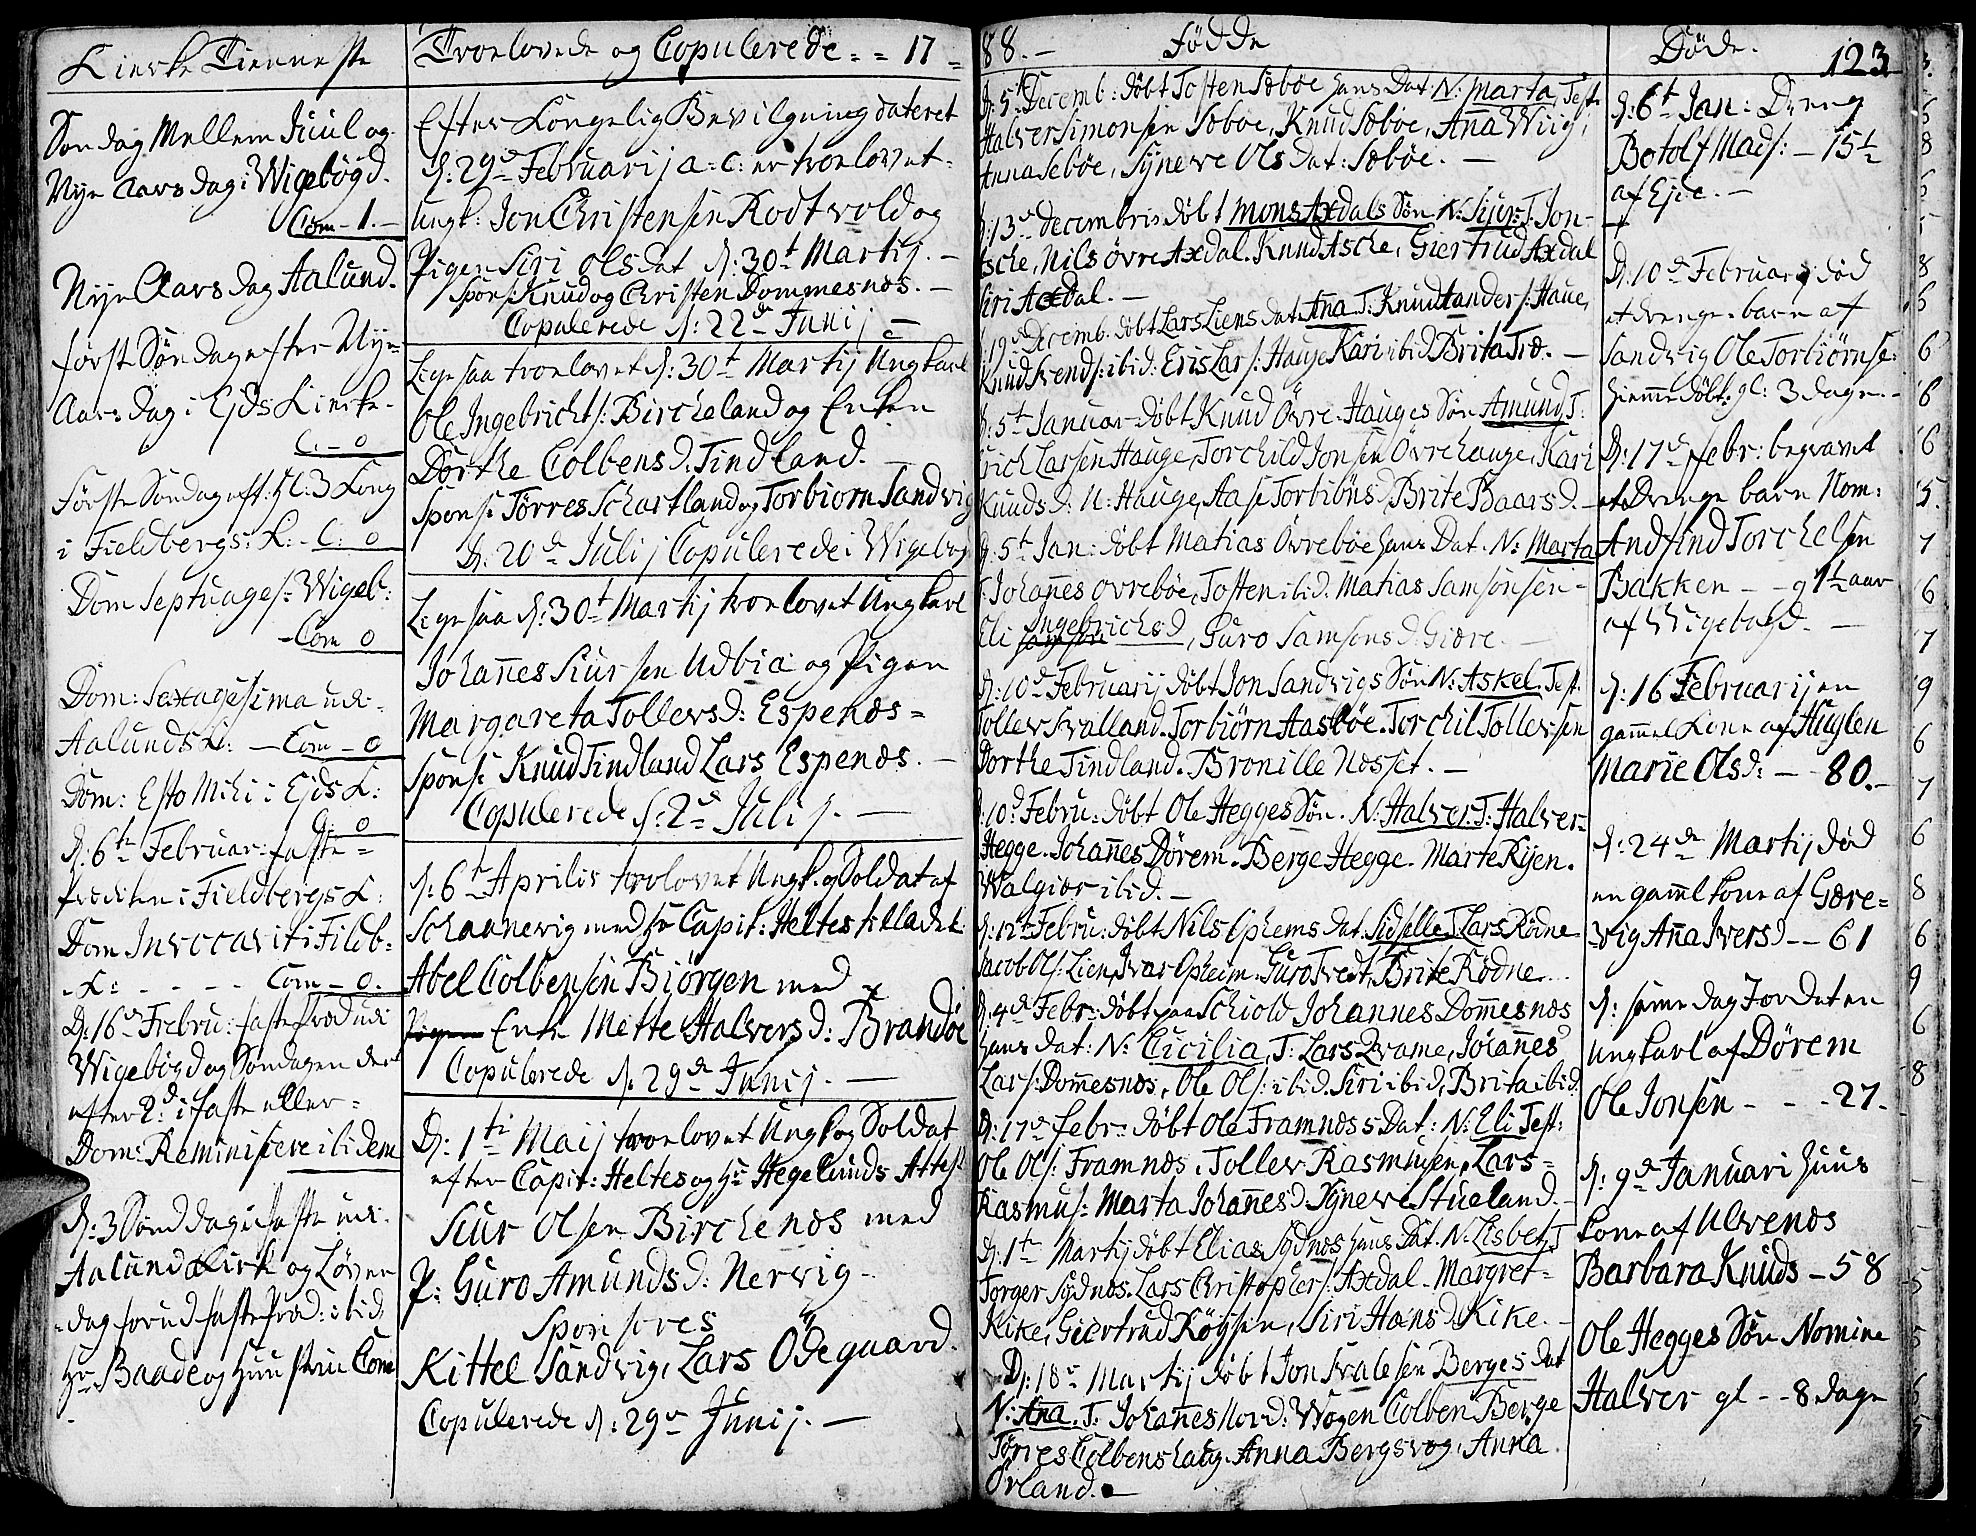 Kirke Tienneste
Søndag Mellem Juul og
Nye Aars dag i Wigebøgd.
Com - 1. -
Nye Aars dag Aalund.
første Søndag efter Nye-
Aars dag i Ejds Kirke.
C. - 0
første Søndag eft: Hl: 3 Kong
i Fieldbergs: K: - C: 0
Dom Septuages: Wigeb:
- Com 0
Dom: Sexagesima udi
Aalunds K: - Com - 0
Dom: Esto Mihi i Ejds K:
C: 0
d: 6te Februar: faste-
Prædiken i Fieldbergs K:
Dom Invocavit i Fildb-
- K: - - - - Com - 0.
D: 16de Frebru: fastepræd udi
Wigebøgd og Søndagen der
efter 2d: i faste eller-
Dom: Reminiscere ibidem
d: 3 Sønd dag i faste udi
Aalunds Kirke og Løver
-dag forud fastepræd: ibid
Hr Baade og Hustrue Com
Troelovede og Copulerede. - 17 -
Efter Kongelig Bevilgning dateret
d: 29de Februarij a: c: er troelovet
Ungk: Jon Christensen Rodtvold og
Pigen Siri Olsdat d: 30t Martij. -
Spons: Knud og Christen Dommesnæs. -
Copulerede d: 22de Junij -
Ligesaa troelovet d: 30t Martij Ungkarl
Ole Ingebrichts: Bircheland og Enken
Dorthe Colbensd. Tindland. -
Spons: Tørres Schartland og Torbiørn Sandvig
d: 20de Julij Copulerede i Wigebøg
Ligesaa d: 30t Martij troelovet Ungkarl
Johannes Siursen Udbia og Pigen
Margareta Tollevsd: Espenæs =
Spons: Knud Tindland Lars Espenæs. -
Copulerede d: 2de Julij. -
d: 6te Aprilis trolovet Ungk: og Soldat af
Schaanevig med Hr Capit: Heltes tilladt:
Abel Colbensen Biørgen med
Pigen Enke Mette Halversd: Brandøe
Copulerede d. 29de Junij. -
D: 1te Maij troelovet Ungk: og Soldat
efter Capit: Heltes og Hr Hegelunds Attest
Siur Olsen Birchenæs med
P: Guro Amundsd: Nervig -
Sponsores
Kittel Sandvig, Lars Ødegaard.
Copulerede d: 29de Junij. -
88. - Fødde
d: 5t Decemb: døbt Tosten Sæbøe hans Dat. N. Marta, Test:
Halver Simonsen Sæboe, Knud Sæbøe, Ana Wiig,
Anna Sebøe, Syneve Olsdat: Sæbøe. -
d: 13de Decembris døbt Mons Axdals Søn N: Siur: T: Jon-
Asche, Nils Øvre Axdal. Knud Asche, Giertrud Axdal
Siri Axdal. -
19de Decemb. døbt Lars Liens dat Ana T. Knud Landers: Haue,
Knud Svends: ibid: Eris Lars: Hauge Kari ibid Brita Træ. -
d: 5t Januar døbt Knud Øvre Hauges Søn Amund T:
Erich Larsen Hauge, Torchild Jonsen Øvre hauge, Kari
Knudsd: N: Hauge, Aase Torbiøns, Brite Baarsd. -
d: 5t Jan: døbt Matias Øvrebøe hans Dat. N: Marta
T. Johannes Øvrebøe, Tosten ibid. Matias Samsonsen -
Eli Ingebrichsd, Guro Samsonsd. Giære. -
d: 10de Februarij døbt Jon Sandvigs Søn N: Askel. Test:
Tollev Svalland. Torbiørn Aasbøe. Torchil Tollevsen
Dorthe Tindland. Bronille Næsset. -
d: 10d Febru: døbt Ole Hegges Søn. N: Halver: T: Halver-
Hegge. Johannes Dørem. Berge Hegge. Marte Rijen.
Walgier ibid. -
d: 12te Febru: døbt Nils Ophems dat. Sidselle T. Lars Rødne
Jacob Ols: Lien, Ivar Opheim. Guro Tvedt, Brite Rødne. ..
d: 4de Febr: døbt paa Schiold Johannes Dommesnæs
hans Dat: N: Cicilia, T: Lars Qvame, Johannes
Lars: Dommesnæs, Ole Ols: ibid. Siri ibid, Brita ibid
d: 17de Febr: døbt Ole Framnæss Dat: N: Eli Test:
Ole Ols: Framnæs, Tollev Rasmusen, Lars-
Rasmus: Marta Johannesd Synevi Stueland. -
d: 1te Martij døbt Elias Sydnæs hans Dat. N. Lisbet, T
Torger Sydnæs. Lars Christophers: Axdal. Margret-
Kike, Giertrud Røgsen, Siri Hansd. Kike. -
D: 18de Martij døbt Jon Svalesen Berges Dat
N: Ana. T. Johannes Nord: Wogen Colben Berge
Tørres Colbenshaug. Anna Bergsvog. Anna
Ørland. -
Døde. 123
d: 6t Jan: Dreng
Botolf Mads: - 15½
af Ejde. -
d: 10de Februarij død
et drenge barn af
Sandvig Ole Torbiørnse:
hjemmedøbt. gl: 3 dage. -
d: 17de febr: begravet
et Drenge barn Nom:
Andfind Torchelsen
Bakken - - g 1½ aar
af Wigebøgd. -
d: 16 Februarij en
gammel Kone af Huglen
Marie Olsd: - - 80. -
d: 24de Martij død
en gaml kone af Gære=
vig Anna Iversd - - 61
d: same dag Jordet en
Ungkarl af Dørem
Ole Jonsen - - - 27.
d: 9de Januari huus
kone af Ulvenæs
Barbara Knuds - 58
Ole Hegges Søn Nomine
Halver gl - - 8 dage